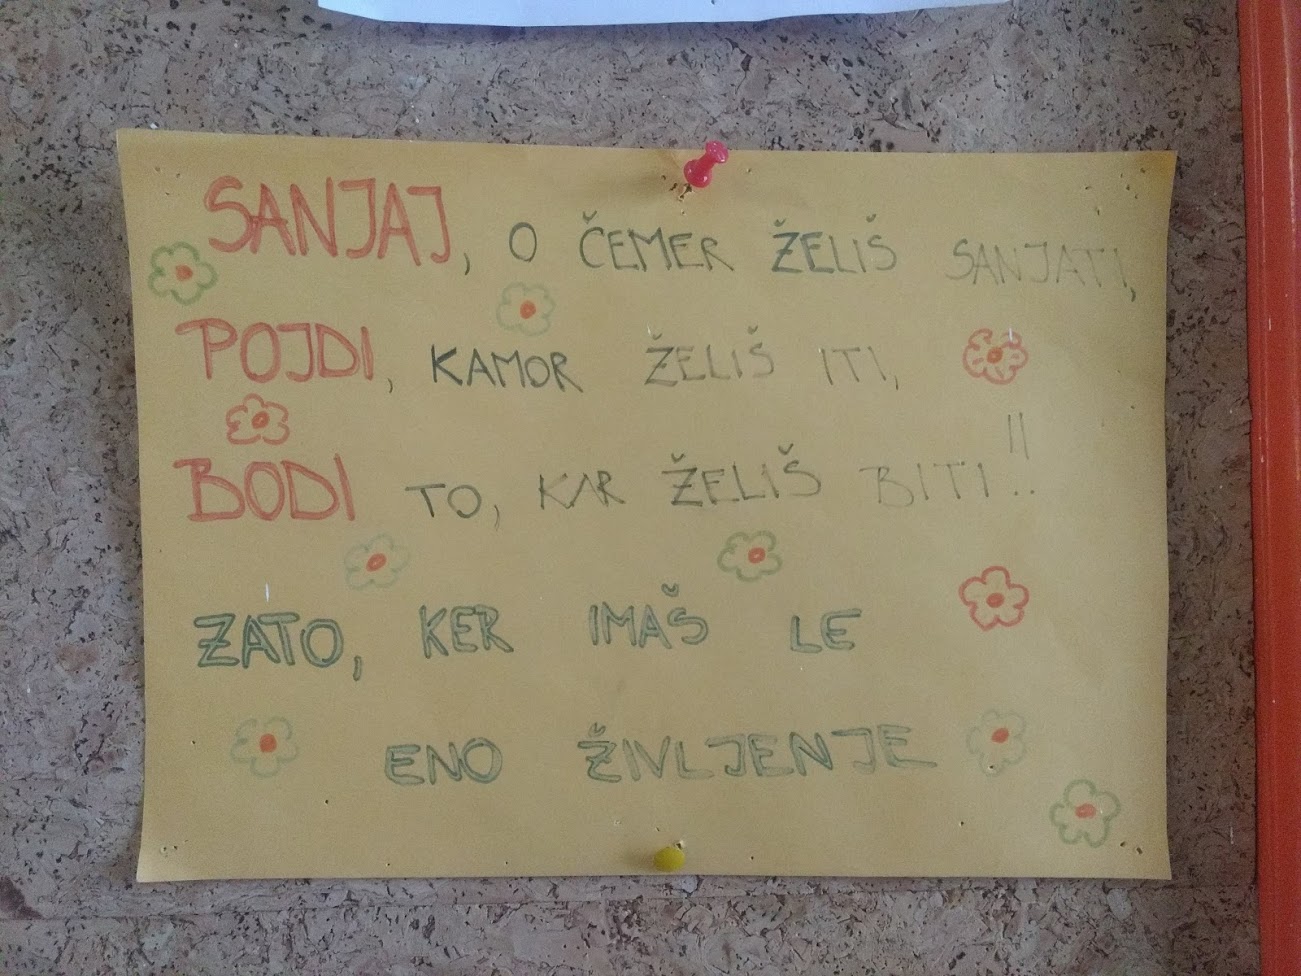 SANJAJ, O ČEMER ŽELIŠ SANJATI,
POJDI, KAMOR ŽELIŠ ITI,
BODI TO, KAR ŽELIŠ BITI!!
ZATO, KER IMAŠ LE
ENO ŽIVLJENJE